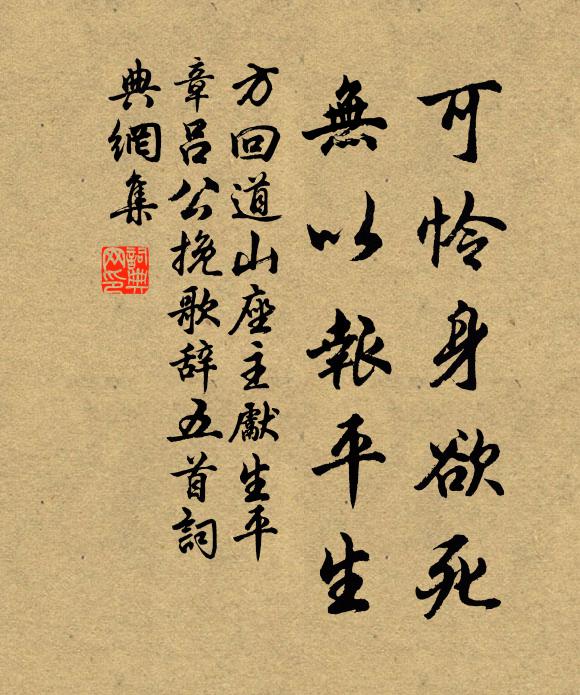 可怜身欲死
無以報平生
方回道山座主獻生平
章呂公挽歌辞五首詞
典網集
詞典网印